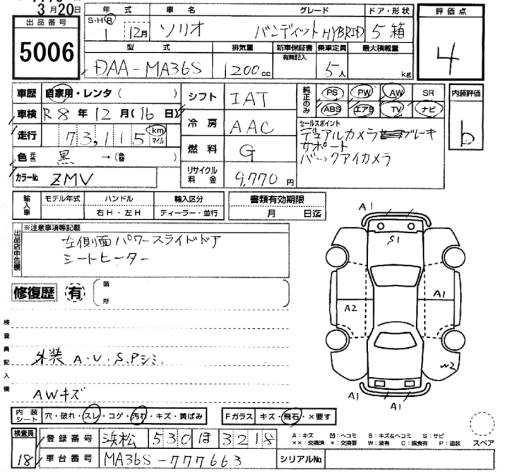 3月20日
出品番号
5006
年式 車名 グレード ドア・形状
S・H・R 1年 12月 ソリオ バンディットHYBRID 5 箱
型式 排気量 新車保証書 乗車定員 最大積載量
有無記入
DAA-MA36S 1200cc 5人 kg
評価点
4
車歴 自家用・レンタ( )
車検 R8年12月(16日)
走行 73,115 km マイル
色 元色 黒 →( )
カラーNo. ZMV
シフト IAT
冷房 AAC
燃料 G
リサイクル料金 9,770円
純正のみ
PS PW AW SR
ABS エアB TV ナビ
セールスポイント
デュアルカメラブレーキ
サポート
バックアイカメラ
内装評価
b
輸入車 モデル年式 ハンドル 輸入区分
年 右H・左H ディーラー・並行
書類有効期限
月 日迄
出品店申告欄
※注意事項等記載
左側面パワースライドドア
シートヒーター
修復歴 有
箇所
検査員記入欄
外装A.U.S.Pシミ
AWキズ
A1 S1 A1 A2 A1 A1 W2
内装シート 穴・破れ・スレ・コゲ・汚れ・キズ・黄ばみ
Fガラス キズ・飛石・×要す
検査員
18
登録番号 浜松 530 ほ 3218
車台番号 MA36S-777663
シリアルNo.
A:キズ 凹:ヘコミ B:キズ&ヘコミ S:サビ
××:交換済 ×:要交換 W:波有 C:腐食有 P:塗装
スペア